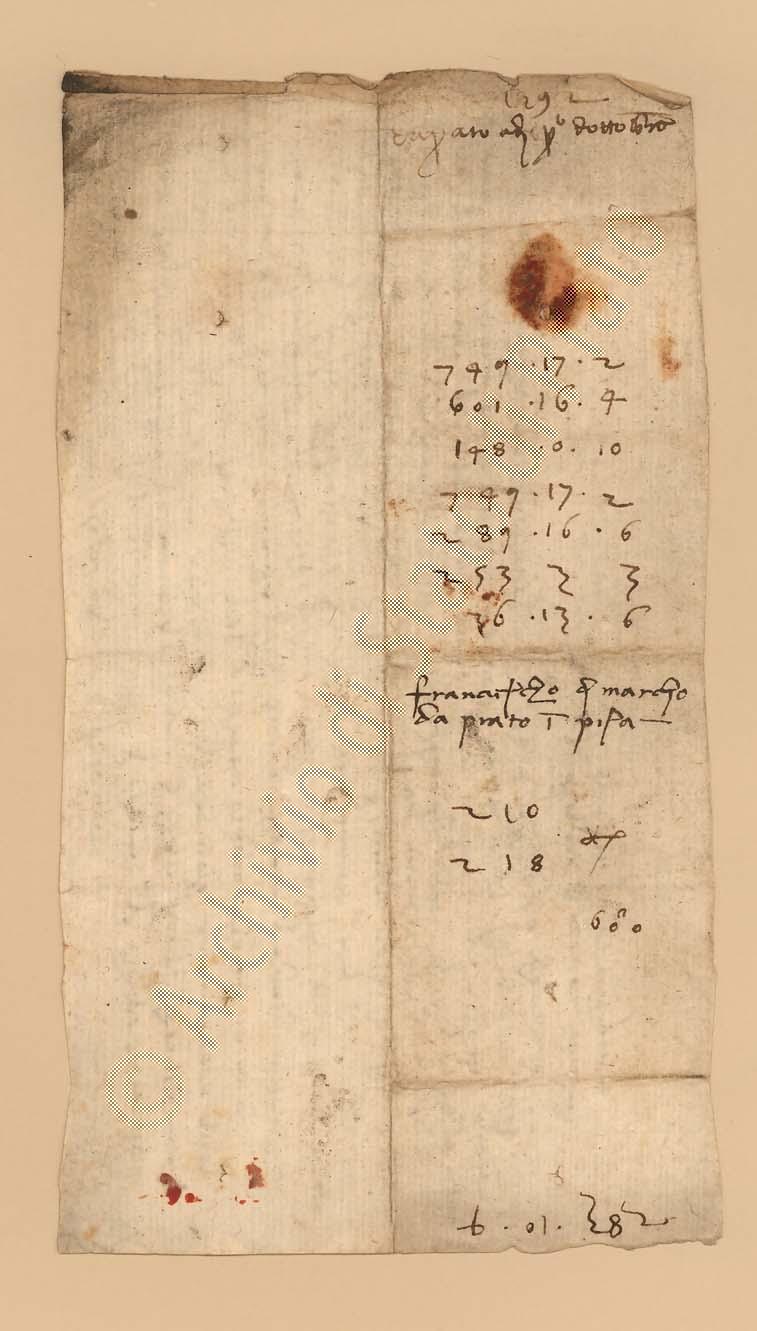 1392
da prato adì pº dottobre
749 · 17 · 2
601 · 16 · 4
148 · 0 · 10
749 · 17 · 2
289 · 16 · 6
253 3 3
36 · 13 · 6
franciescho di marcho
da prato ī pisa
210
218
600
· 01 · 382
© Archivio di Stato di Prato